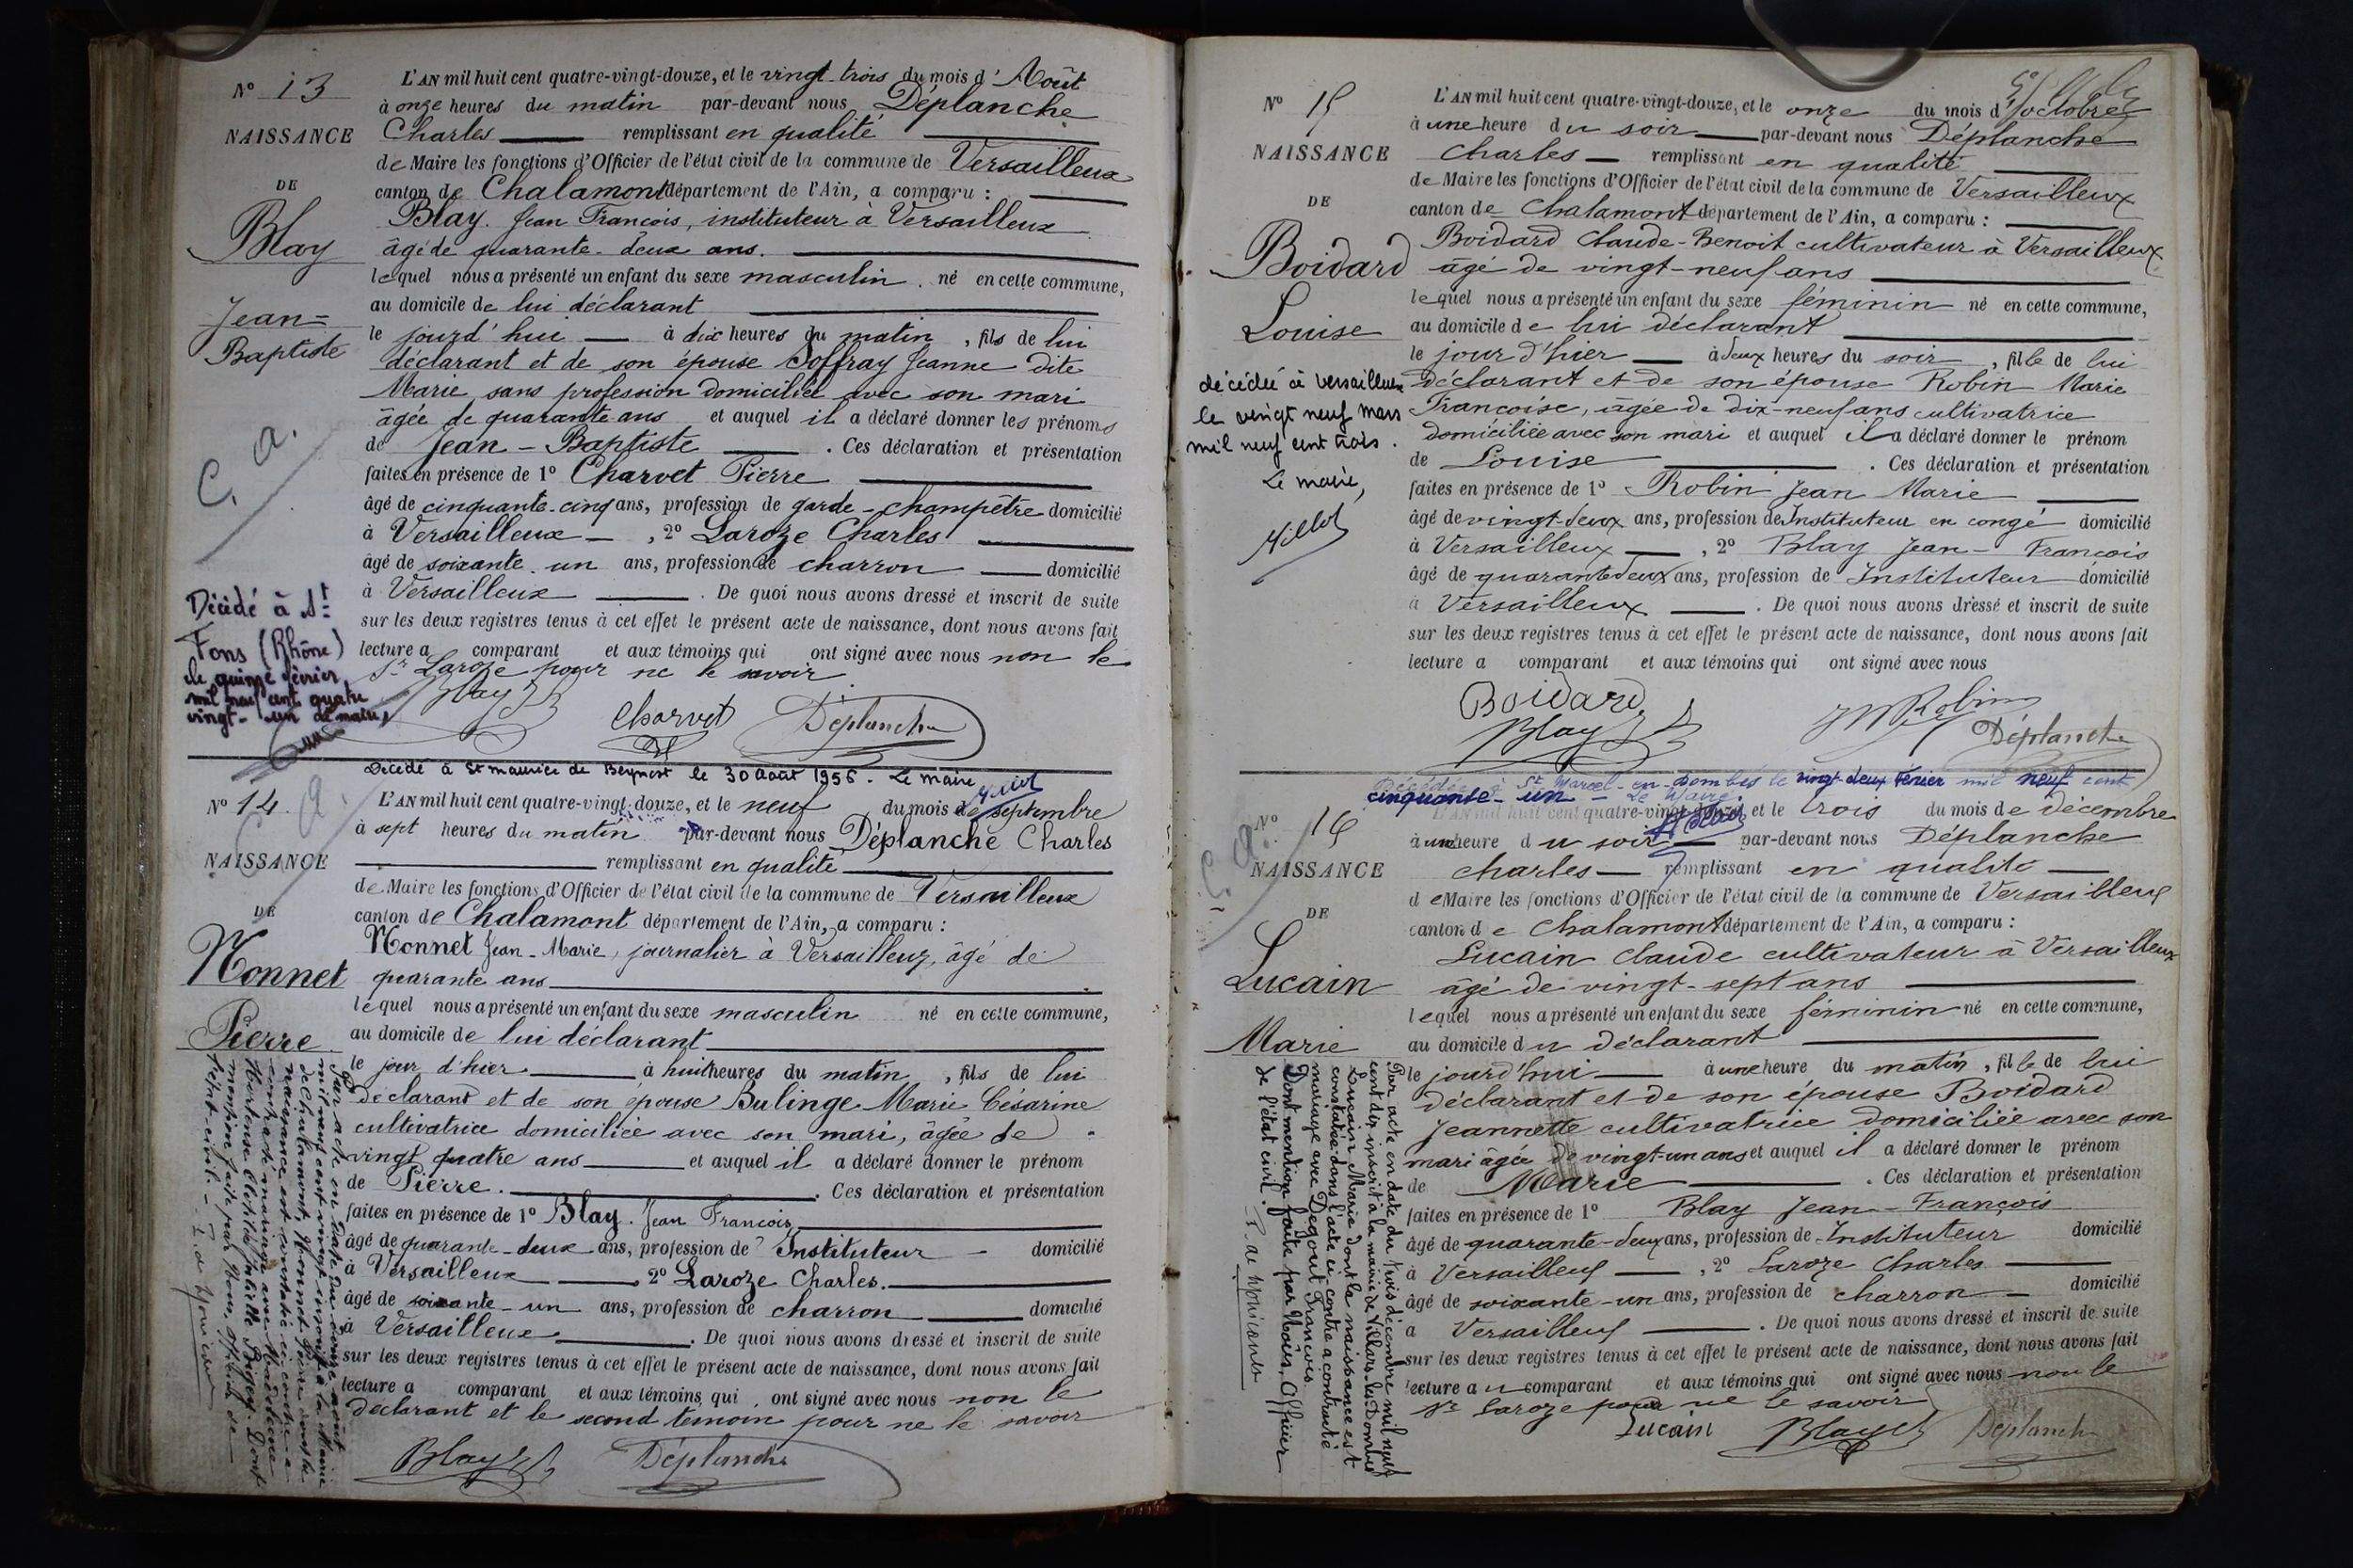 N° 13
NAISSANCE
DE
Blay
Jean=
Baptiste
C. a.
Décédé à St
Fons (Rhône)
le quinze février
mil neuf cent quatre
vingt-un Le maire,
L'AN mil huit cent quatre-vingt-douze, et le vingt-trois du mois d'Août
à onze heures du matin par-devant nous Déplanche
Charles remplissant en qualité
de Maire les fonctions d'Officier de l'état civil de la commune de Versailleux
canton de Chalamont département de l'Ain, a comparu :
Blay. Jean François, instituteur à Versailleux
âgé de quarante-deux ans.
lequel nous a présenté un enfant du sexe masculin. né en cette commune,
au domicile de lui déclarant
le jourd'hui à dix heures du matin, fils de lui
déclarant et de son épouse Soffray Jeanne dite
Marie, sans profession domiciliée avec son mari
âgée de quarante ans et auquel il a déclaré donner les prénoms
de Jean-Baptiste. Ces déclaration et présentation
faites en présence de 1° Charvet Pierre
âgé de cinquante-cinq ans, profession de garde-champêtre domicilié
à Versailleux, 2° Laroze Charles
âgé de soixante un ans, profession de charron domicilié
à Versailleux. De quoi nous avons dressé et inscrit de suite
sur les deux registres tenus à cet effet le présent acte de naissance, dont nous avons fait
lecture a comparant et aux témoins qui ont signé avec nous non le
Sr Laroze pour ne le savoir
Blay Charvet Déplanche
Décédé à St Maurice de Beynost le 30 Août 1956. Le maire
N° 14
NAISSANCE
DE
Monnet
Pierre
C. a.
L'AN mil huit cent quatre-vingt-douze, et le neuf du mois de septembre
à sept heures du matin par-devant nous Déplanche Charles
remplissant en qualité
de Maire les fonctions d'Officier de l'état civil de la commune de Versailleux
canton de Chalamont département de l'Ain, a comparu :
Monnet Jean-Marie, journalier à Versailleux, âgé de
quarante ans
lequel nous a présenté un enfant du sexe masculin né en cette commune,
au domicile de lui déclarant
le jour d'hier à huit heures du matin, fils de lui
déclarant et de son épouse Bulinge Marie Césarine
cultivatrice domiciliée avec son mari, âgée de
vingt quatre ans et auquel il a déclaré donner le prénom
de Pierre. Ces déclaration et présentation
faites en présence de 1° Blay. Jean François
âgé de quarante-deux ans, profession de Instituteur domicilié
à Versailleux 2° Laroze Charles.
âgé de soixante-un ans, profession de charron domicilié
à Versailleux. De quoi nous avons dressé et inscrit de suite
sur les deux registres tenus à cet effet le présent acte de naissance, dont nous avons fait
lecture a comparant et aux témoins qui ont signé avec nous non le
déclarant et le second temoin pour ne le savoir
Blay Déplanche
Par acte en date du août
mil neuf cent vingt inscrit à la Mairie
de Chalamont, Monnet Pierre dont la
naissance est constatée ci-contre a
contracté mariage avec Madeleine
Hortense Juliette Dont
mention faite par Nous, Officier de
l'état-civil.
N° 15
NAISSANCE
DE
Boidard
Louise
décédée à Versailleux
le vingt neuf mars
mil neuf cent trois.
Le maire,
L'AN mil huit cent quatre-vingt-douze, et le onze du mois d'octobre
à une heure du soir par-devant nous Déplanche
Charles remplissant en qualité
de Maire les fonctions d'Officier de l'état civil de la commune de Versailleux
canton de Chalamont département de l'Ain, a comparu :
Boidard Claude-Benoit cultivateur à Versailleux
âgé de vingt-neuf ans
lequel nous a présenté un enfant du sexe féminin né en cette commune,
au domicile de lui déclarant
le jour d'hier à deux heures du soir, fille de lui
déclarant et de son épouse Robin Marie
Françoise, âgée de dix-neuf ans cultivatrice
domiciliée avec son mari et auquel il a déclaré donner le prénom
de Louise. Ces déclaration et présentation
faites en présence de 1° Robin Jean Marie
âgé de vingt-deux ans, profession de Instituteur en congé domicilié
à Versailleux, 2° Blay Jean-François
âgé de quarante deux ans, profession de Instituteur domicilié
à Versailleux. De quoi nous avons dressé et inscrit de suite
sur les deux registres tenus à cet effet le présent acte de naissance, dont nous avons fait
lecture a comparant et aux témoins qui ont signé avec nous
Boidard JM Robin
Blay Déplanche
Décédée à St Marcel-en-Dombes le vingt-deux Février mil neuf cent
cinquante-un - Le Maire
N° 16
NAISSANCE
DE
Lucain
Marie
C. a.
L'AN mil huit cent quatre-vingt-douze et le trois du mois de décembre
à une heure du soir par-devant nous Déplanche
Charles remplissant en qualité
de Maire les fonctions d'Officier de l'état civil de la commune de Versailleux
canton de Chalamont département de l'Ain, a comparu :
Lucain Claude cultivateur à Versailleux
âgé de vingt-sept ans
lequel nous a présenté un enfant du sexe féminin né en cette commune,
au domicile du déclarant
le jourd'hui à une heure du matin, fille de lui
déclarant et de son épouse Boidard
Jeannette cultivatrice domiciliée avec son
mari âgée de vingt-un ans et auquel il a déclaré donner le prénom
de Marie. Ces déclaration et présentation
faites en présence de 1° Blay Jean-François
âgé de quarante-deux ans, profession de Instituteur domicilié
à Versailleux, 2° Laroze Charles
âgé de soixante-un ans, profession de charron domicilié
a Versailleux. De quoi nous avons dressé et inscrit de suite
sur les deux registres tenus à cet effet le présent acte de naissance, dont nous avons fait
lecture au comparant et aux témoins qui ont signé avec nous non le
Sr Laroze pour ne le savoir
Lucain Blay Déplanche
Par acte en date du trois décembre mil neuf
cent dix inscrit à la mairie de Villars-les-Dombes
Lucain Marie dont la naissance est
constatée dans l'acte ci-contre a contracté
mariage avec Degout François
Dont mention faite par Nous, Officier
de l'état civil.